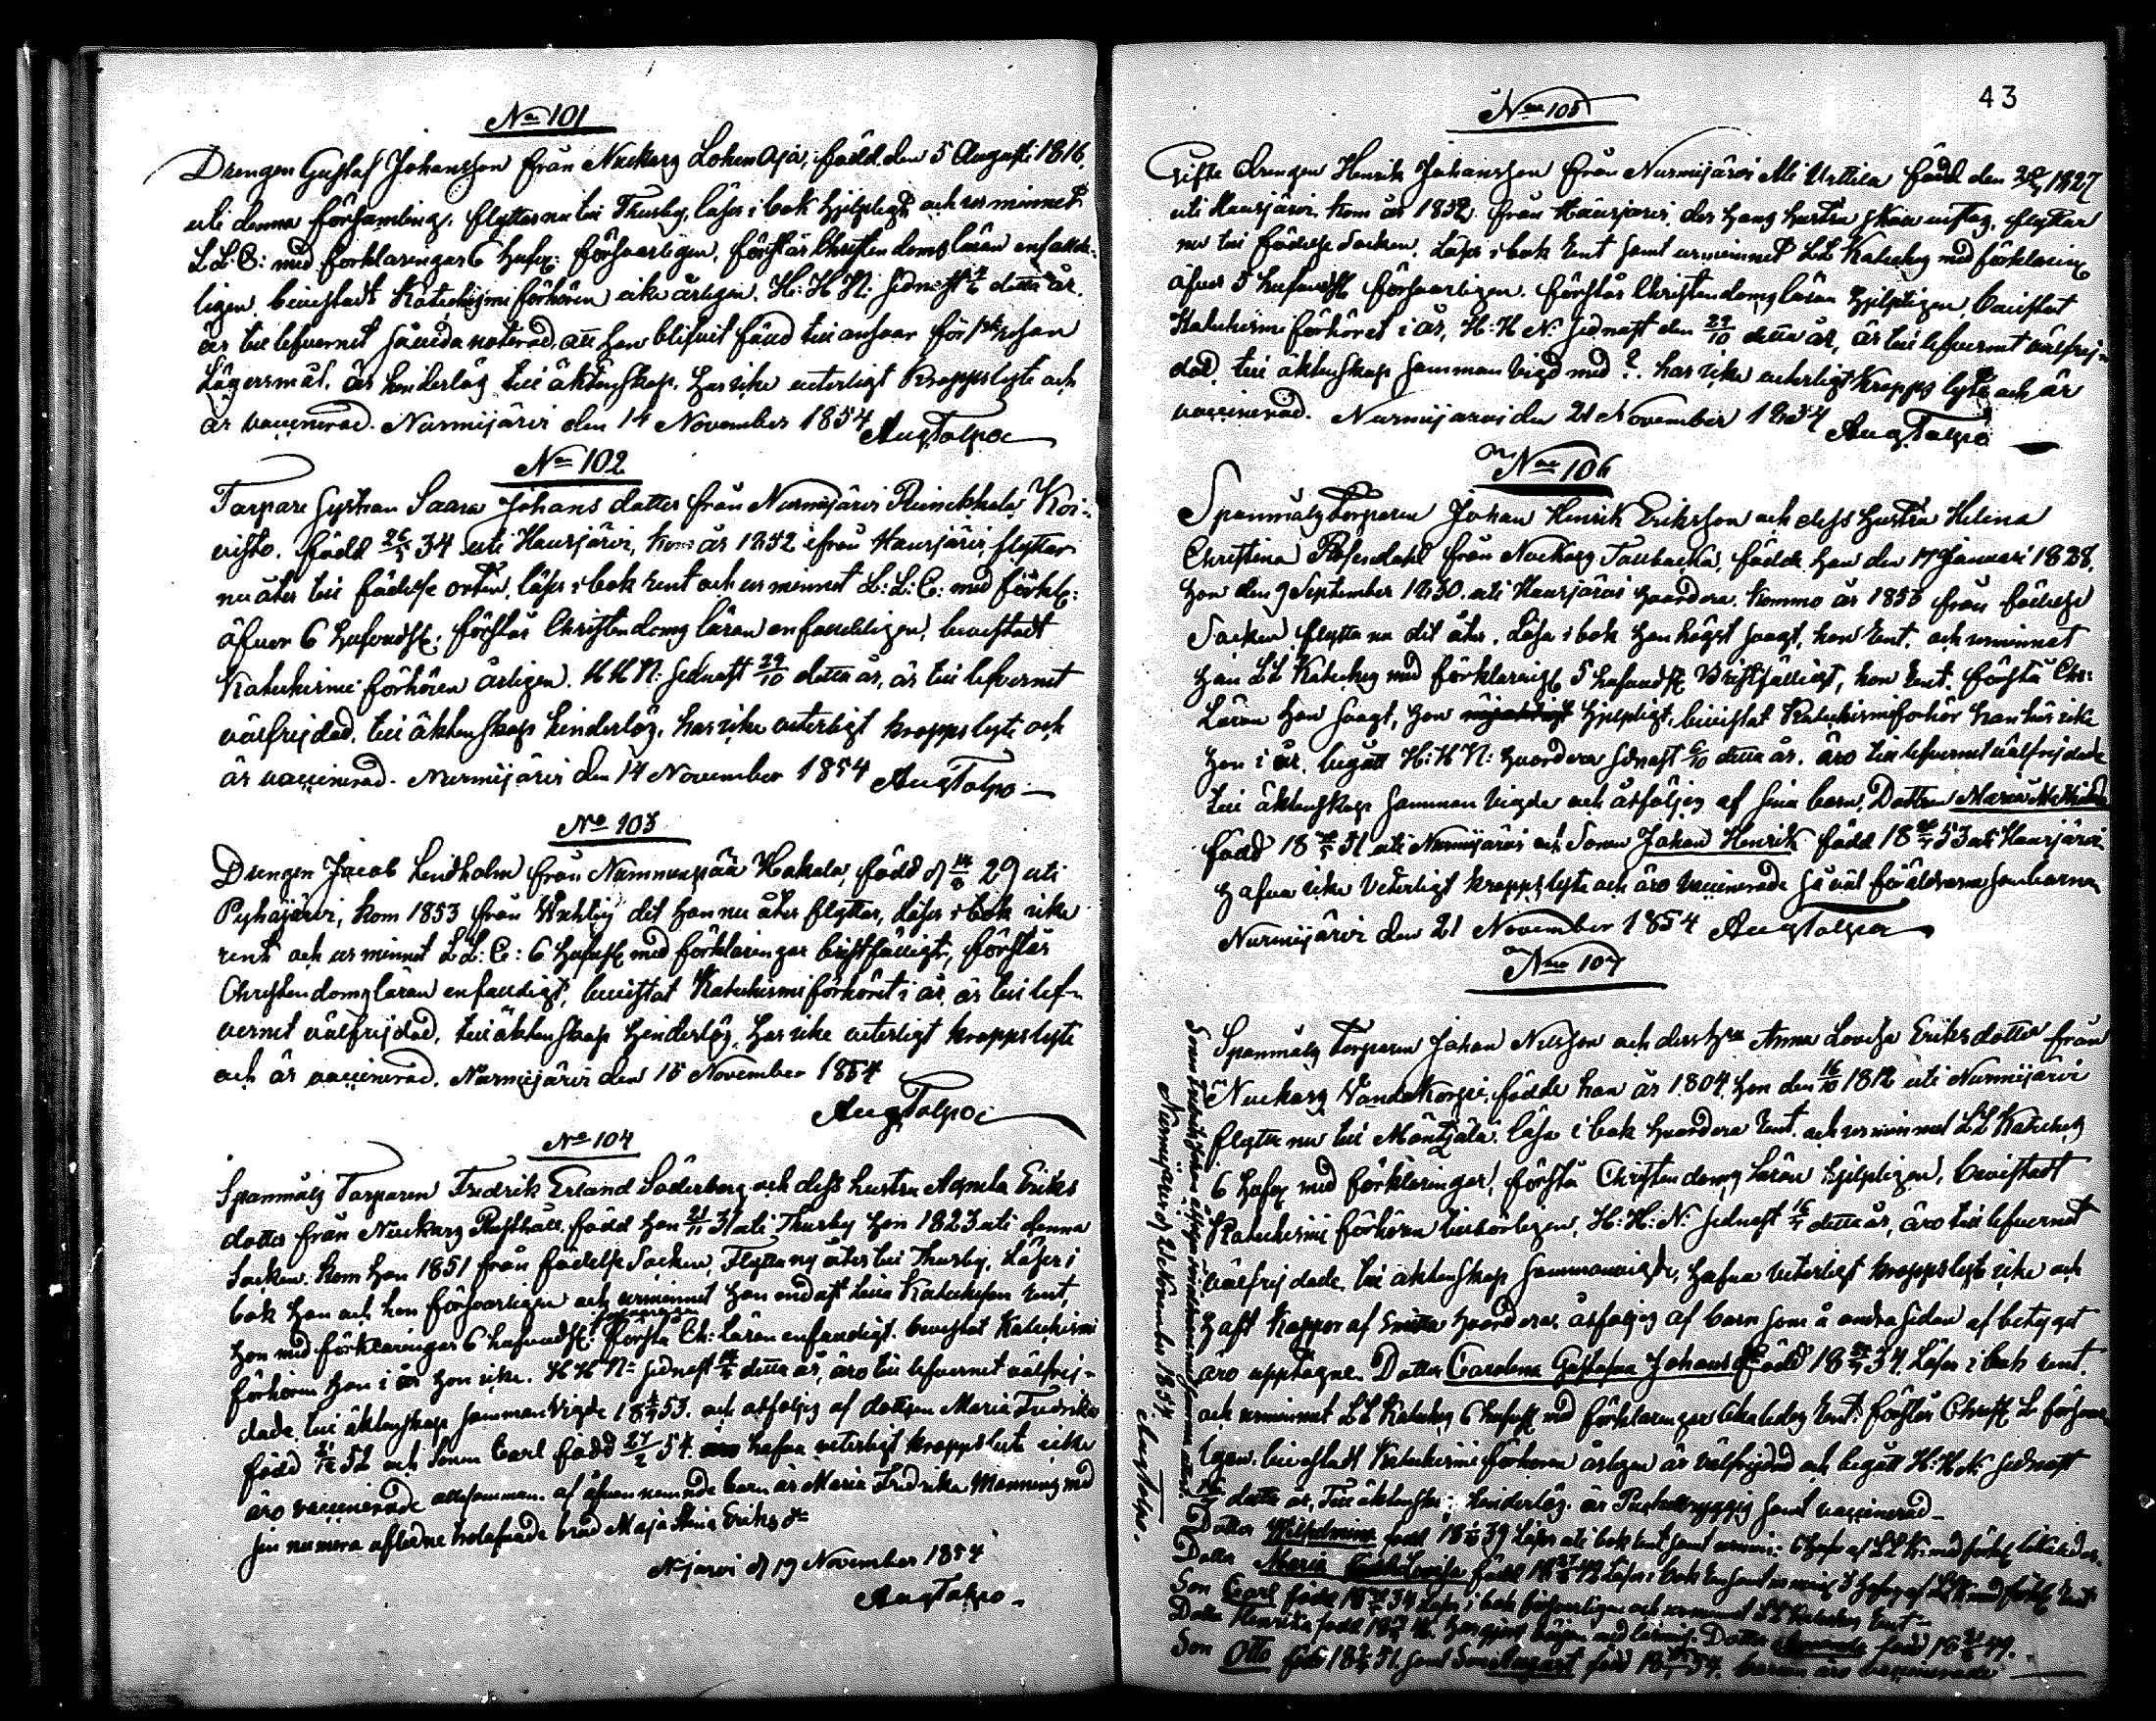 No 101
Drengen Gustaf Johansson från Nuckars Lohen Aja, född den 5 Augusti 1816,
uti denna församling, flyttar nu till Thusby, läser i bok hjelpligt och ur minnet
L. L. C: med förklaringar 6 husex: försvarligen, förstår Christendoms läran enfalde-
ligen, bevistadt Katechismi förhören icke årligen. H: H. N: sednast detta år.
är till lefvernet såvida noterad, att han blifvit fäld till ansvar för 1sta resan
Lägersmål, är hinderlös till äktenskap, har icke veterligt Kroppslyte och
är vaccinerad. Nurmijärvi den 14 November 1854 Aug Talpo
No 102
Torpare Hustrun Saara Johans dotter från Nurmijärvi Koi-
visto, född 26/5 34 uti Hausjärvi, kom år 1852 ifrån Hausjärvi, flyttar
nu åter till födelse orten, läser i bok rent och ur minnet L: L: C: med förkl:
öfver 6 hufvudst, förstår Christendoms läran enfaldeligen, bevistadt
Katechismi förhören årligen. H H N: sednast 29/10 detta år, är till lefvernet
välfrejdad, till äktenskap hinderlös, har icke veterligt kroppslyte och
är vaccinerad. Nurmijärvi den 14 November 1854 Aug Talpo
No 103
Drengen Jacob Lindholm från Nummenpää Hakala, född d 14/8 29 uti
Pyhäjärvi, kom 1853 från Wichtis dit han nu åter flyttar, läser i bok icke
rent och ur minnet L L: C: 6 hufust med förklaringar bristfälligt, förstår
Christendoms läran enfaldigt, bevistat Katechismi förhöret i år, är till lef-
vernet välfrejdad, till äktenskap hinderlös, har icke veterligt kroppslyte
och är vaccinerad. Nurmijärvi den 15 November 1854
Aug Talpo
No 104
Spannmåls Torparen Fredrik Erland Söderberg och dess hustru Eriks
dotter från Nuckars Rusthåll född han 21/11 31 uti Thusby hon 1823 uti denna
Socken. Kom han 1851 från födelse Socken, Flytta nu åter till Thusby, Läser i
bok han och hon försvarligen och urminnet han endast Katechesen rent,
hon med förklaringar 6 hufvudst: förstå Ch: Läran enfaldigt. bevistat Katechismi
förhören han i år hon icke. H H N: sednast detta år, äro till lefvernet välfrej-
dade, till äktenskap samman vigde 53. och åtföljes af dottren Maria Fredrika
född 52 och Sonen Carl född 27/2 54. hafva veterligt kroppslyte icke
äro vaccinerade allesamman. af ofvan nemnde barn är Maria Fredrika Mannens med
sin numera aflidne trolofvade brud Maja Stina Eriks dr
Njarvi d 19 November 1854
Aug Talpo
43
No 105
Gifte drengen Henrik Johansson från Nurmijärvi Ali Uottila född den 1827
uti Hausjärvi, kom år 1852 från Hausjärvi, der hans hustru skall vistas, flyttar
nu till födelse Socken. Läser i bok rent samt urminnet LL Kateches med förklaring
öfver 5 hufvudst försvarligen. förstår Christendoms läran hjelpligen, bevistat
Katechismi förhöret i år, H: H N: sednast den 29/10 detta år, är till lefvernet välfrej-
dad, till äktenskap samman Vigd med ?. har icke veterligt kropps lyte och är
vaccinerad. Nurmijarvi den 21 November 1854 Aug Talpo
No 106
Spannmåls Torparen Johan Henrik Eriksson och dess hustru Helena
Christina Rosendahl från Nuckars Taubacka, födde han den 17 Januari 1828,
hon den 9 September 1830. uti Hausjärvi hvardera. Kommo år 1853 från födelse
Socken, flytta nu dit åter. Läsa i bok han högst svagt, hon rent, och urminnet
han LL Kateches med förklaring 5 hufvudst Bristfälligt, hon rent. förstå Chr:
Läran han svagt, hon hjelpligt, bevistat Katechismi förhör han har icke
hon i år. begått H: H N: hvardera sednast detta år. äro till lefvernet välfrejdade
till äktenskap samman vigde och åtföljes af sina barn, Dottren Maria
född 18 51 uti Nurmijärvi och Sonen Johan Henrik född 18 53 uti Hausjärvi
hafva icke Veterligt kroppslyte och äro vaccinerade så väl föräldrarna som barnen
Nurmijärvi den 21 November 1854 Aug Talpo
No 107
Spannmåls Torparen Johan Nilsson och dess hu Anna Lovisa Eriksdotter från
Nuckars Wanda Korpi. födde han år 1804, hon den 16/10 1812 uti Nurmijärvi
flytta nu till Mäntsälä. läsa i bok hvardera rent och urminnet LL Kateches
6 husex med förklaringar, förstå Christendoms läran hjelpligen, bevistadt
Katechismi förhören, H: H: N: sednast detta år, äro till lefvernet
välfrejdade, till äktenskap sammanvigde, hafva veterligt kroppslyte icke och
haft koppor af hvardera, åtföljes af barn som å andra sidan af betyget
äro upptagne. Dotter Carolina Gustafva Johans dr född 18 34. Läser i bok rent.
och urminnet LL Kateches 6 hufust med förklaringar rent: förstår Christ L försvar
ligen, bevistadt Katechismi förhören årligen är välfrejdad och begått H: H N sednast
detta år, Till äktenskap: hinderlös. är samt vaccinerad
Dotter Wilhelmina född 18 39 Läser uti bok rent samt
Dotter Maria Lovisa född 18 42 Läser i bok
Son Carl född 18 34 Läser i bok försvarligen och urminnet LL Kateches rent
Dotter Henrika född 18. Dotter född 18 49.
Son Otto född 18 51. samt Son August född 18 54. barnen äro vaccinerade
Nurmijärvi d 21 November 1854. Aug Talpo